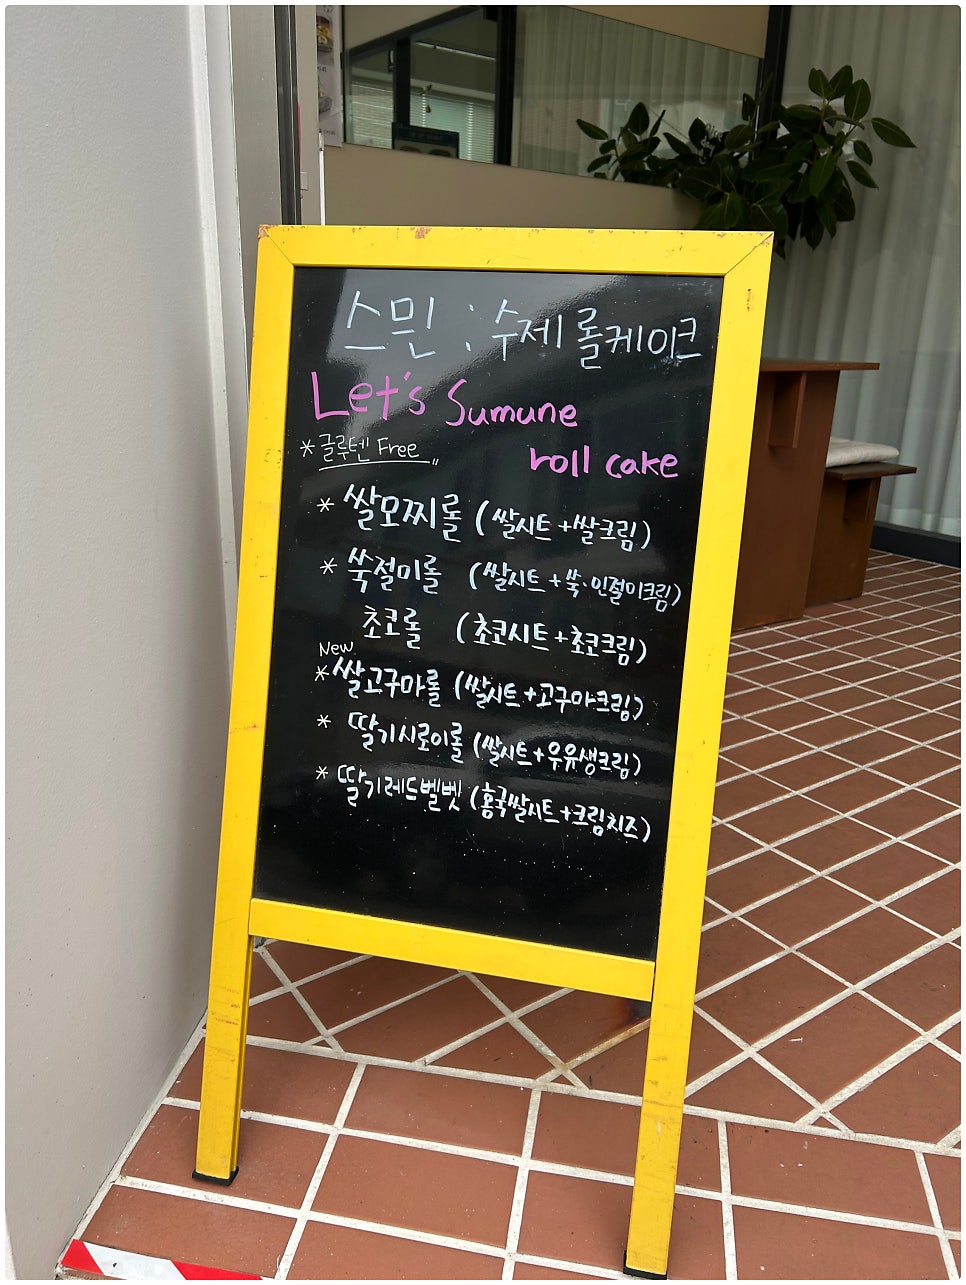 스믄 : 수제 롤케이크
Let's Sumune
roll cake
* 글루텐 Free "
* 쌀모찌롤 (쌀시트+쌀크림)
* 쑥절미롤 (쌀시트+쑥·인절미크림)
초코롤 (초코시트+초코크림)
New
* 쌀고구마롤 (쌀시트+고구마크림)
* 딸기시로이롤 (쌀시트+우유생크림)
* 딸기레드벨벳 (홍국쌀시트+크림치즈)